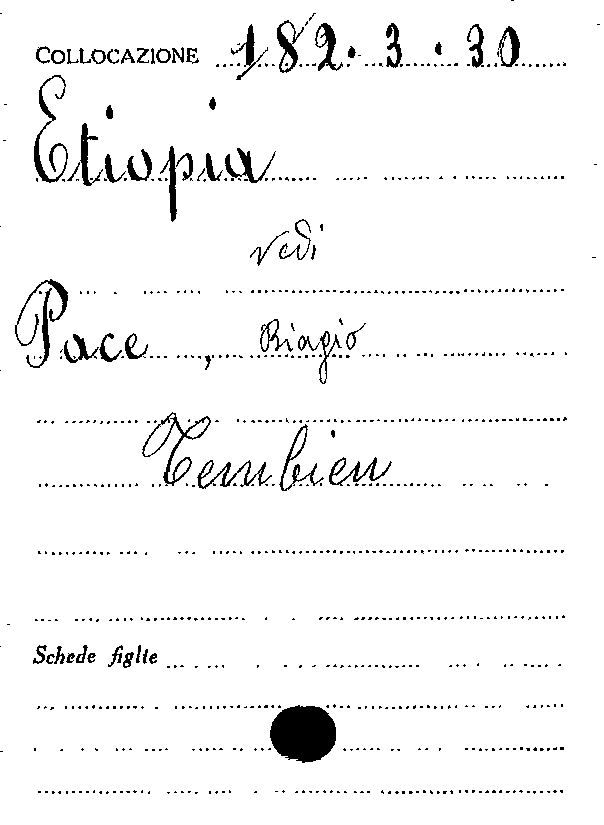 COLLOCAZIONE 182.3.30
Etiopia
vedi
Pace, Biagio
Tembien
Schede figlie